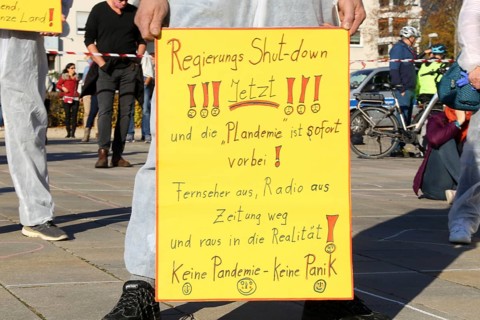 end,
nze Land!
Regierungs Shut-down
!!! Jetzt !!!
und die „PLandemie" ist sofort
vorbei!
Fernseher aus, Radio aus
Zeitung weg
und raus in die Realität!
Keine Pandemie - Keine Panik